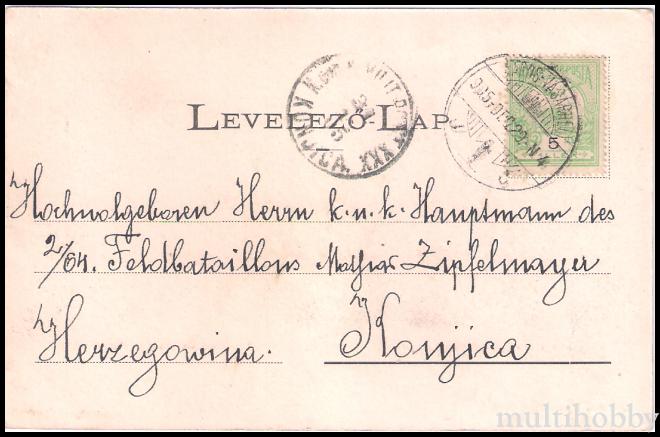 LEVELEZŐ-LAP
5
Hochwolgeboren Herrn k.u.k. Hauptmann des
2/64. Feldbataillons Mathias Zipfelmayer
Herzegowina. Konjica
multihobby